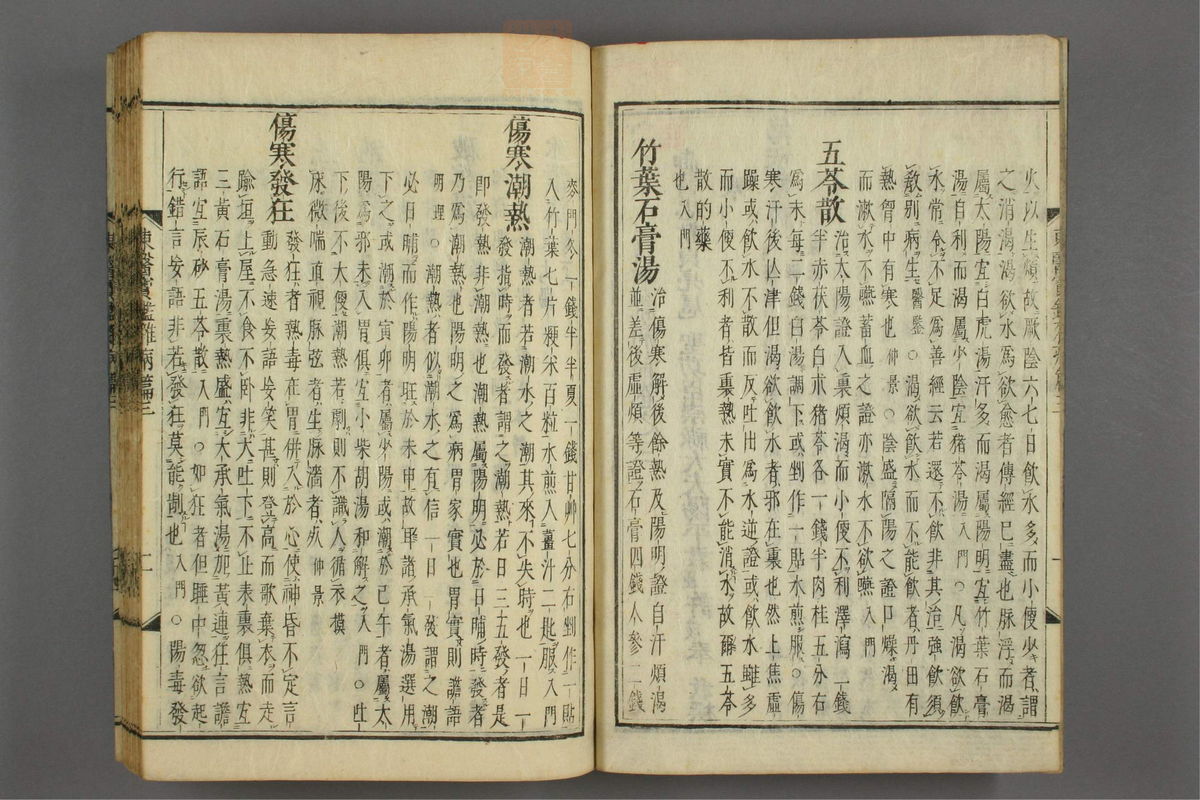 火以生煩故厥陰六七日飮水多而小便少者謂
之消渴渴欲水爲欲愈者傳經已盡也脉浮而渴
屬太陽宜白虎湯汗多而渴屬陽明宜竹葉石膏
湯自利而渴屬少陰宜猪苓湯入門○凡渴欲飮
水常令不足爲善經云若還不飮非其治強飮須
敎別病生醫鑒○渴欲飮水而不能飮者丹田有
熱胷中有寒也仲景○陰盛隔陽之證口燥渴
而漱水不嚥蓄血之證亦漱水不欲嚥入門
五苓散
治太陽證入裏煩渴而小便不利澤瀉二錢
半赤茯苓白朮猪苓各一錢半肉桂五分右
爲末每二錢白湯調下或剉作一貼水煎服○傷
寒汗後亾津但渴欲飮水者邪在裏也然上焦虛
躁或飮水不散而反吐出爲水逆證或飮水雖多
而小便不利者皆裏熱未實不能消水故爾五苓
散的藥
也入門
竹葉石膏湯
治傷寒解後餘熱及陽明證自汗煩渴
並差後虛煩等證石膏四錢人參二錢
麥門冬一錢半半夏一錢甘艸七分右剉作一貼
入竹葉七片粳米百粒水煎入薑汁二匙服入門
傷寒潮熱
潮熱者若潮水之潮其來不失時也一日一
發指時而發者謂之潮熱若日三五發者是
即發熱非潮熱也潮熱屬陽明必於日晡時發者
乃爲潮熱也陽明之爲病胃家實也胃實則譫語
明理○潮熱者似潮水之有信一日一發謂之潮
必日晡而作陽明旺於未申故耶諸承氣湯選用
下之或潮於寅卯者屬少陽或潮於巳午者屬太
陽爲邪未入胃俱宜小柴胡湯和解之入門○吐
下後不大便潮熱若劇則不識人循衣摸
床微喘直視脉弦者生脉濇者死仲景
傷寒發狂
發狂者熱毒在胃併入於心使神昏不定言
動急速妄語妄笑甚則登高而歌棄衣而走
踰垣上屋不食不卧非大吐下不止表裏俱熱宜
三黃石膏湯裏熱盛宜大承氣湯加黃連狂言譫
語宜辰砂五苓散入門○如狂者但臍中忽欲起
行錯言妄語非若發狂莫能制也入門○陽毒發
東醫寶鑑雜病篇三